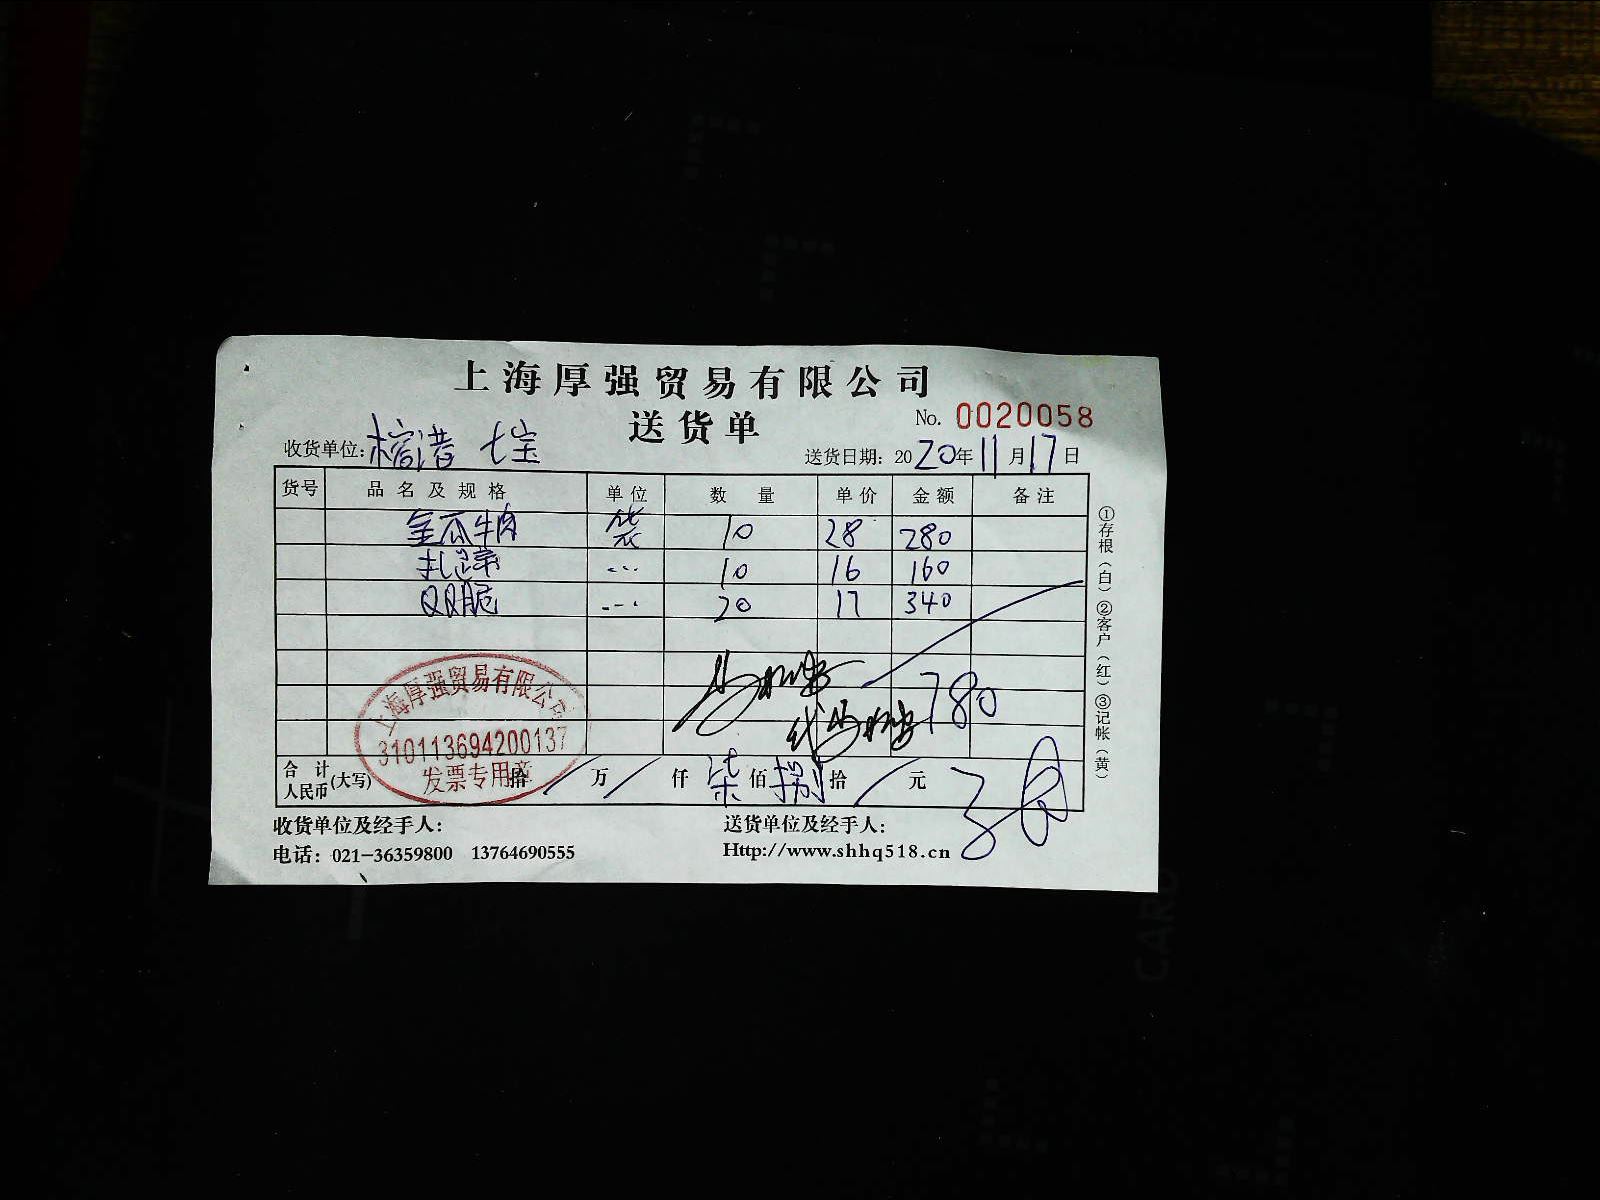 上海厚强贸易有限公司
送货单
No. 0020058
收货单位: 榕港 七宝
送货日期: 2020年11月17日
货号 品名及规格 单位 数量 单价 金额 备注
金瓜牛肉 袋 10 28 280
扎蹄 ... 10 16 160
QQ脆 ... 20 17 340
780
上海厚强贸易有限公司
310113694200137
发票专用章
合计人民币(大写) 拾 / 万 / 仟 柒 佰 捌 拾 / 元
①存根(白)②客户(红)③记帐(黄)
收货单位及经手人:
送货单位及经手人:
电话: 021-36359800 13764690555
Http://www.shhq518.cn
CARD